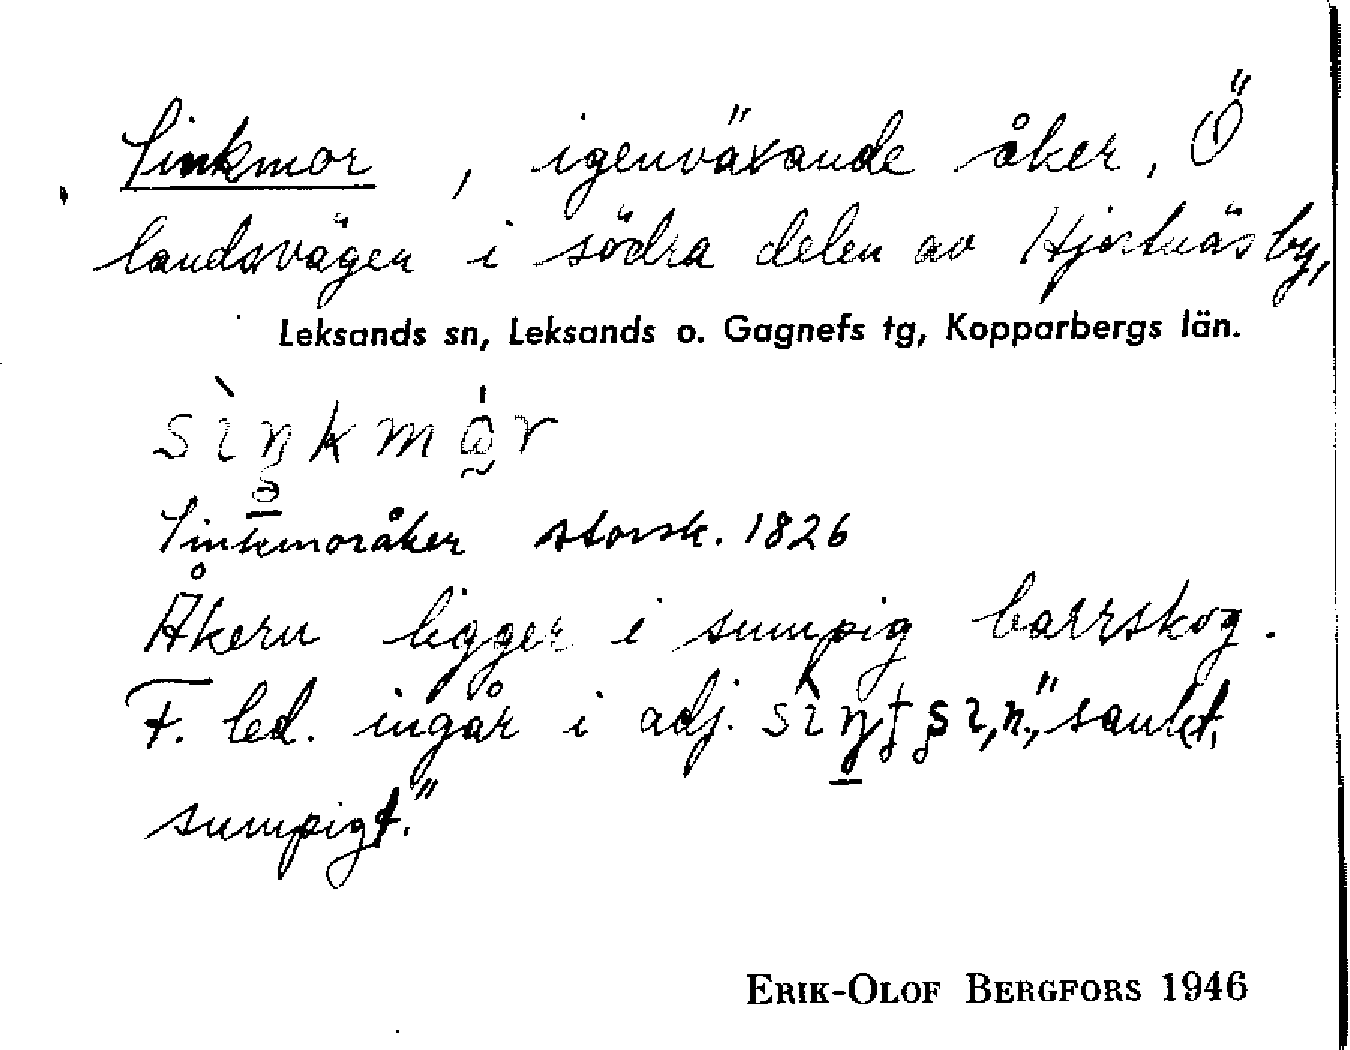 Sinkmor, igenväxande åker, Ö
landsvägen i södra delen av Hjortnäs by,
Leksands sn, Leksands o. Gagnefs tg, Kopparbergs län.
Sinkmoråker storsk. 1826
Åkern ligger i sumpig barrskog.
F. led. ingår i adj. "sankt,
sumpigt."
ERIK-OLOF BERGFORS 1946